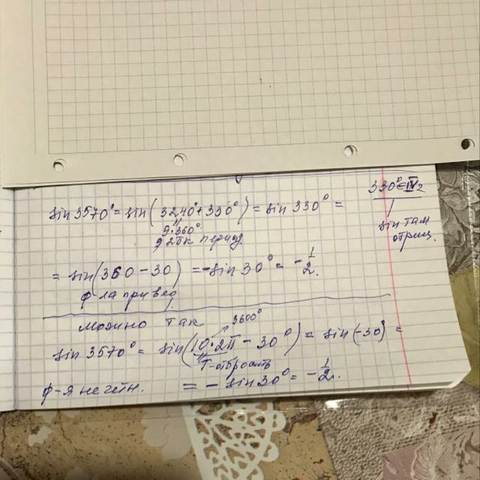 sin 3570° = sin(3240° + 330°) = sin 330° =
330° ∈ IV
9·360°
sin там
отриц.
= sin(360 − 30) = −sin 30° = −1/2.
ф-ла привед
можно так
3600°
sin 3570° = sin(10·2π − 30°) = sin(−30°) =
T-отбросить
ф-я нечётн. = − sin 30° = −1/2.